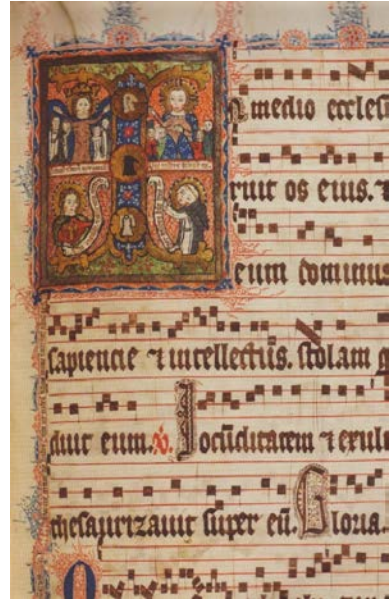 In medio eccleſi
ruit os eius. ⁊
eum dominus
ſapiencie ⁊ intellectus. ſtolam g
duit eum. V̇. Jocūditatem ⁊ exul
theſaurizauit ſuper eū. Gloria.